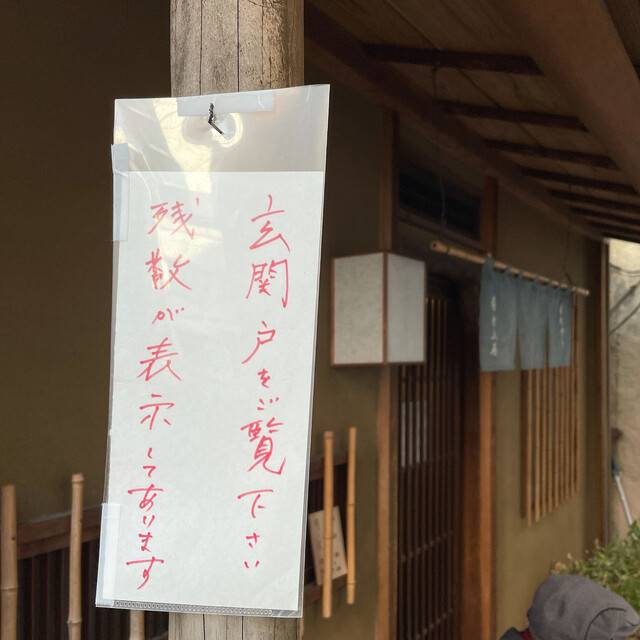 玄関戸をご覧下さい
残数が表示してあります